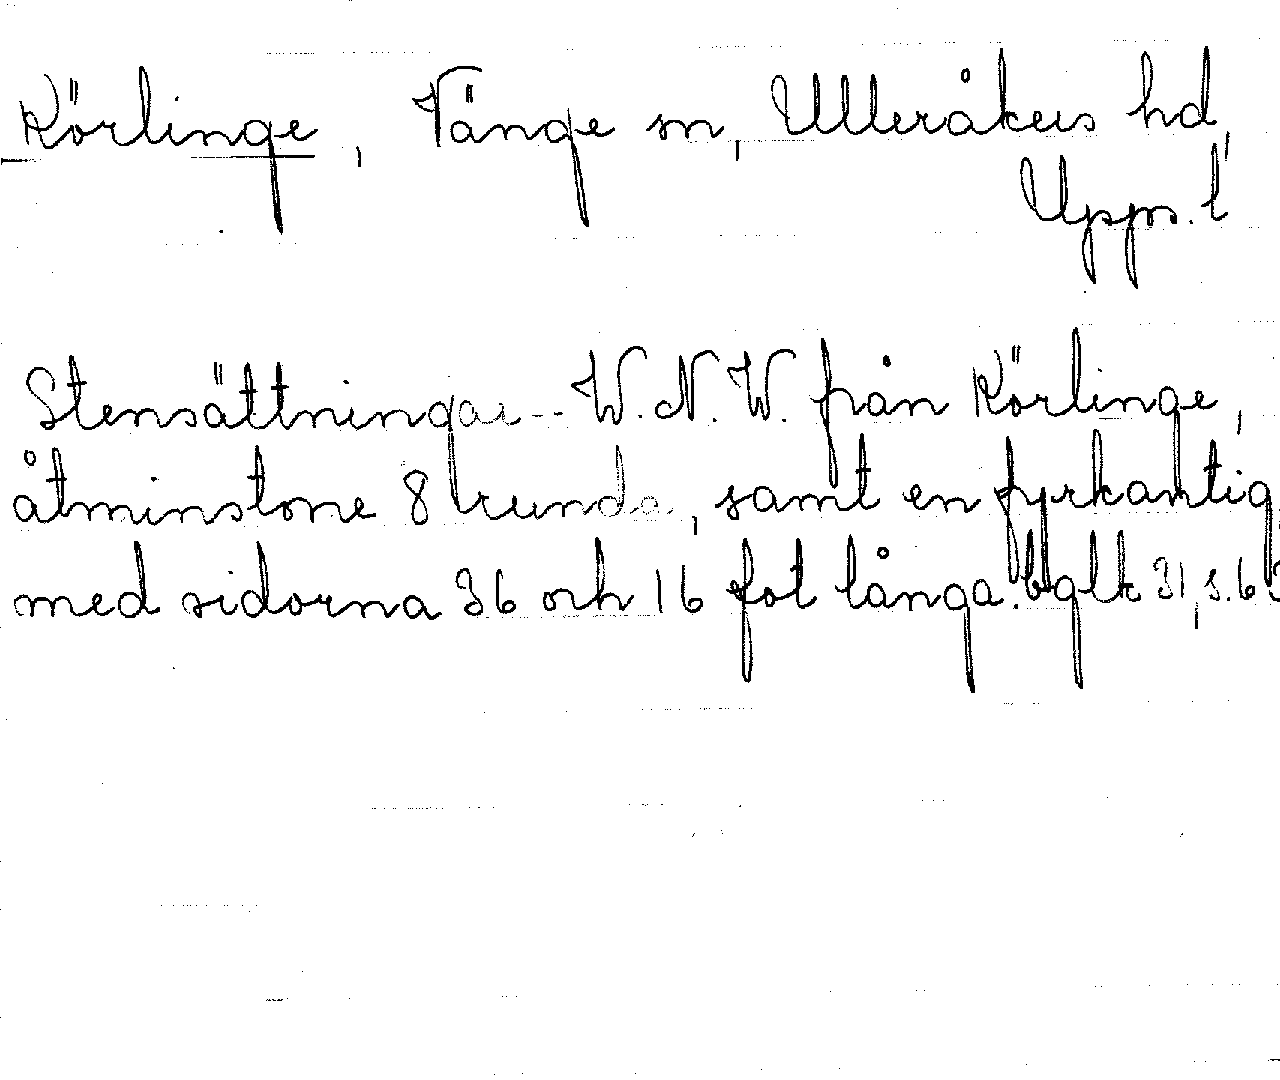 Körlinge, Vänge sn, Ulleråkers hd,
Upps. l
Stensättningar -- W.N.W. från Körlinge,
åtminstone 8 runda, samt en fyrkantig
med sidorna 36 och 16 fot långa. bglk 31, s. 63